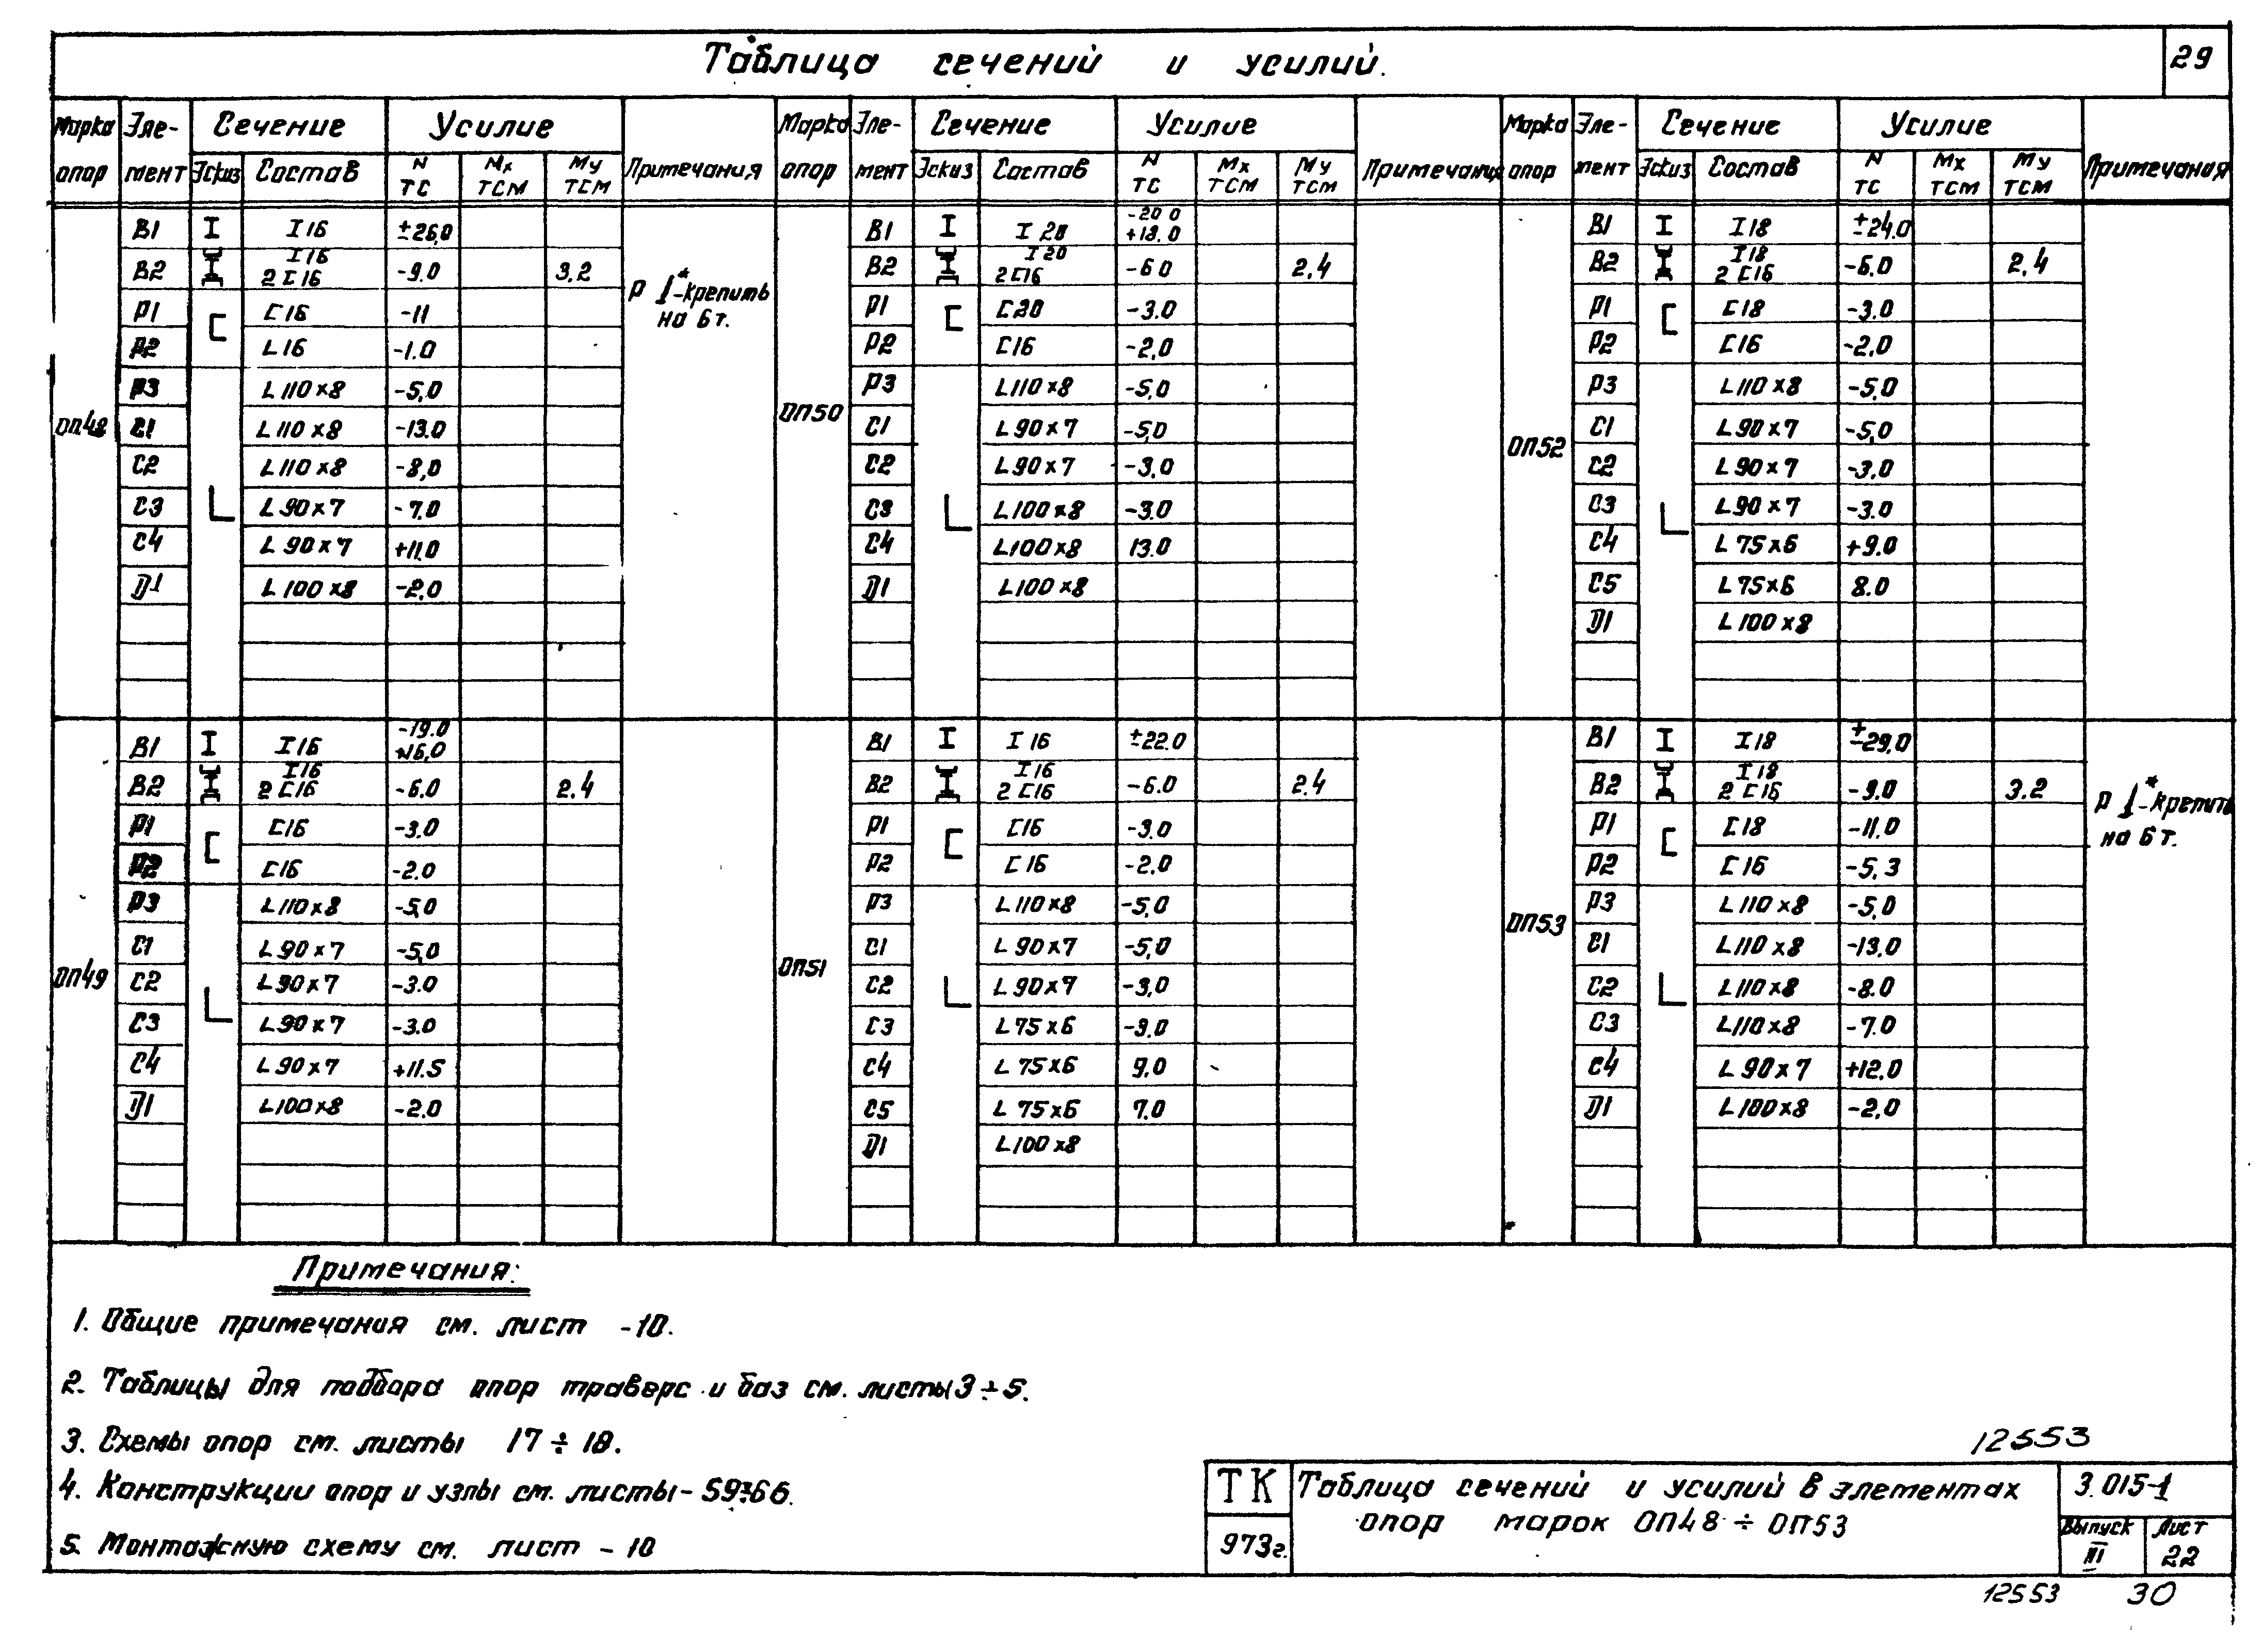 Таблица сечений и усилий.
29
Марка опор Эле-мент Сечение Усилие Примечания
Эскиз Состав N тс Mx тсм My тсм
Марка опор Эле-мент Сечение Усилие Примечания
Эскиз Состав N тс Mx тсм My тсм
Марка опор Эле-мент Сечение Усилие Примечания
Эскиз Состав N тс Mx тсм My тсм
ОП48
В1 I16 ±26,0
В2 I16 2[16 -9.0 3.2
Р1 [16 -11
Р2 L16 -1.0
Р3 L110×8 -5,0
С1 L110×8 -13.0
С2 L110×8 -8,0
С3 L90×7 -7.0
С4 L90×7 +11.0
Д1 L100×8 -2.0
-крепить
на 6т.
ОП50
В1 I20 -20 0 +18.0
В2 I20 2[16 -6 0 2.4
Р1 [20 -3.0
Р2 [16 -2,0
Р3 L110×8 -5,0
С1 L90×7 -5,0
С2 L90×7 -3,0
С3 L100×8 -3.0
С4 L100×8 13.0
Д1 L100×8
ОП52
В1 I18 ±24.0
В2 I18 2[16 -6.0 2.4
Р1 [18 -3.0
Р2 [16 -2,0
Р3 L110×8 -5,0
С1 L90×7 -5,0
С2 L90×7 -3,0
С3 L90×7 -3.0
С4 L75×6 +9.0
С5 L75×6 8.0
Д1 L100×8
ОП49
В1 I16 -19.0 +16,0
В2 I16 2[16 -6.0 2.4
Р1 [16 -3.0
Р2 [16 -2.0
Р3 L110×8 -5,0
С1 L90×7 -5,0
С2 L90×7 -3.0
С3 L90×7 -3.0
С4 L90×7 +11.5
Д1 L100×8 -2.0
ОП51
В1 I16 ±22.0
В2 I16 2[16 -6.0 2.4
Р1 [16 -3.0
Р2 [16 -2.0
Р3 L110×8 -5,0
С1 L90×7 -5,0
С2 L90×7 -3,0
С3 L75×6 -3.0
С4 L75×6 9.0
С5 L75×6 7.0
Д1 L100×8
ОП53
В1 I18 ±29,0
В2 I18 2[16 -9.0 3.2
Р1 [18 -11.0
Р2 [16 -5,3
Р3 L110×8 -5,0
С1 L110×8 -13.0
С2 L110×8 -8.0
С3 L110×8 -7.0
С4 L90×7 +12.0
Д1 L100×8 -2,0
-крепить
на 6т.
Примечания:
1. Общие примечания см. лист -10.
2. Таблицы для подбора опор траверс и баз см. листы 3÷5.
3. Схемы опор см. листы 17÷18.
4. Конструкции опор и узлы см. листы - 59÷66.
5. Монтажную схему см. лист - 10
12553
ТК
973г.
Таблица сечений и усилий в элементах
опор марок ОП48÷ОП53
3.015-1
Выпуск III
Лист 22
12553 30